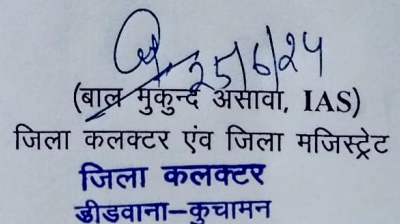 25/6/24
(बाल मुकुन्द असावा, IAS)
जिला कलक्टर एंव जिला मजिस्ट्रेट
जिला कलक्टर
डीडवाना-कुचामन